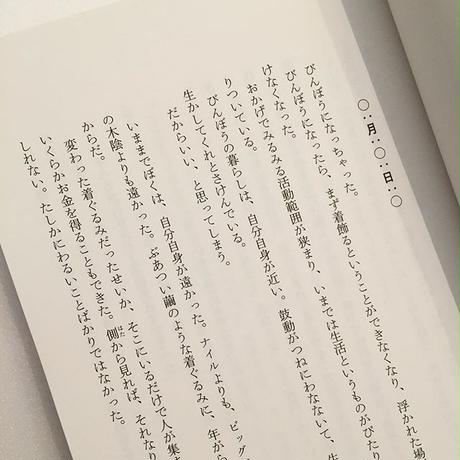 ○‥月‥○‥日‥○
びんぼうになっちゃった。
びんぼうになったら、まず着飾るということができなくなり、浮かれた場
けなくなった。
おかげでみるみる活動範囲が狭まり、いまでは生活というものがぴたり
りついている。
びんぼうの暮らしは、自分自身が近い。鼓動がつねにわなないて、生
生かしてくれとさけんでいる。
だからいい、と思ってしまう。
いままでぼくは、自分自身が遠かった。ナイルよりも、ビッグ
の木陰よりも遠かった。ぶあつい繭のような着ぐるみに、年がら
からだ。
変わった着ぐるみだったせいか、そこにいるだけで人が集ま
いくらかお金を得ることもできた。側から見れば、それなり
しれない。たしかにわるいことばかりではなかった。